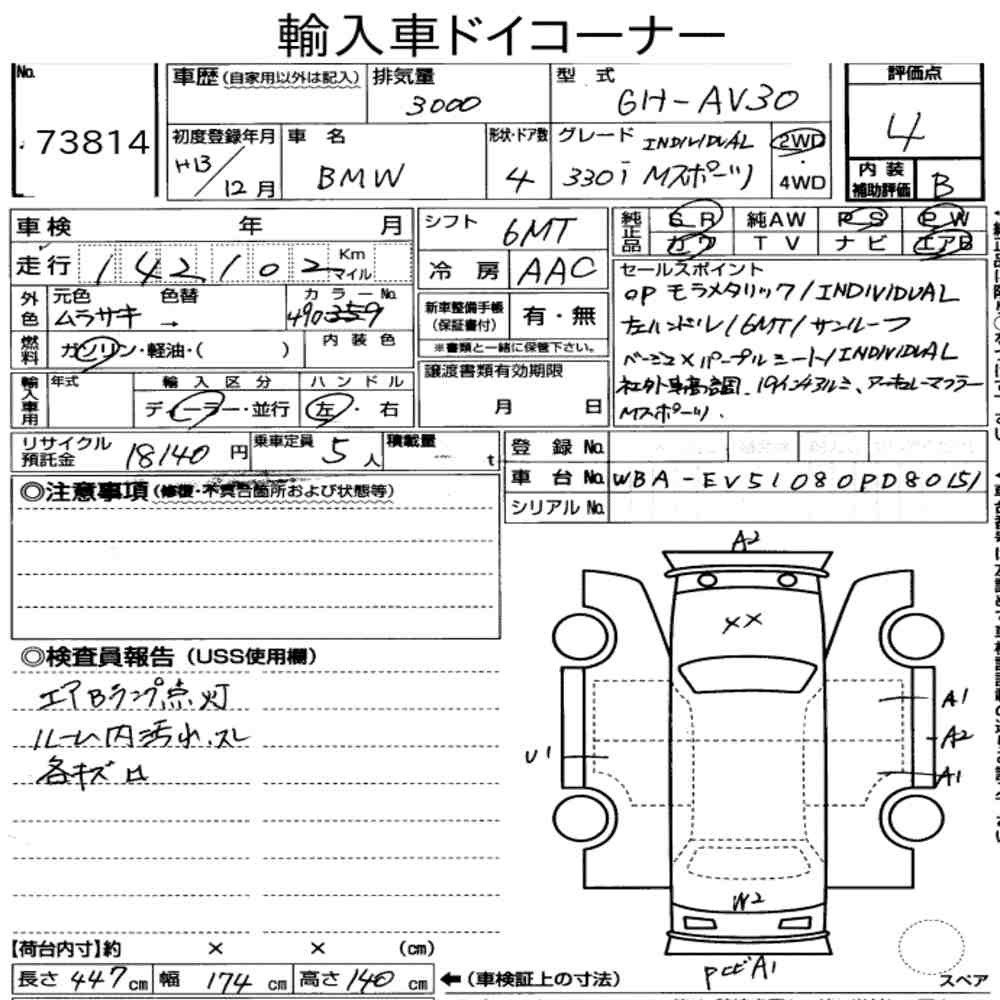 輸入車ドイコーナー
No. 73814
車歴(自家用以外は記入) 排気量 3000 型式 GH-AV30
初度登録年月 H13/12月 車名 BMW 形状・ドア数 4 グレード INDIVIDUAL 330i Mスポーツ 2WD・4WD
評価点 4
内装補助評価 B
車検 年 月
走行 142,102 Km マイル
外色 元色 ムラサキ 色替 → カラーNo. 490359
燃料 ガソリン・軽油・( ) 内装色
輸入車用 年式 輸入区分 ディーラー・並行 ハンドル 左・右
シフト 6MT
冷房 AAC
新車整備手帳(保証書付) 有・無
※書類と一緒に保管下さい。
譲渡書類有効期限
月 日
純正品 SR 純AW PS PW
カワ TV ナビ エアB
セールスポイント
OP モラメタリック/INDIVIDUAL
左ハンドル/6MT/サンルーフ
ベージュ×パープルシート/INDIVIDUAL
社外車高調、19インチアルミ、アーキュレーマフラー
Mスポーツ.
リサイクル預託金 18140円 乗車定員 5人 積載量 ー t
登録No.
車台No. WBA-EV51080PD80151
シリアルNo.
◎注意事項(修復・不具合箇所および状態等)
◎検査員報告(USS使用欄)
エアBランプ点灯
ルーム内汚れ.スレ
各キズ凹
A2
××
A1
A2
A1
U1
W2
PビビA1
スペア
【荷台内寸】約 × × (cm)
長さ 447cm 幅 174cm 高さ 140cm ←(車検証上の寸法)